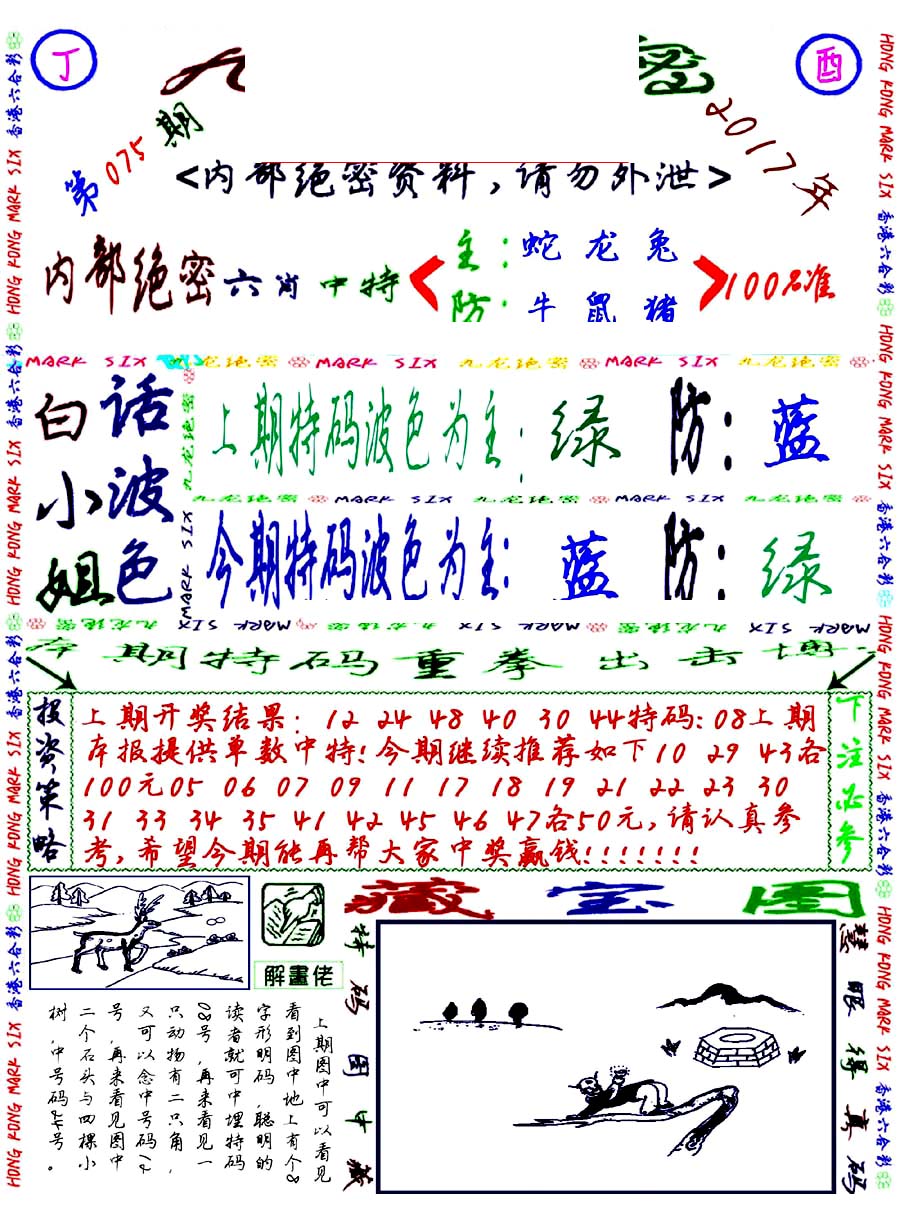 丁
酉
第075期
2017年
<内部绝密资料,请勿外泄>
内部绝密六肖中特
主:蛇 龙 兔
防:牛 鼠 猪
100%准
MARK SIX 九龙绝密 MARK SIX 九龙绝密 MARK SIX 九龙绝密
白小姐
话波色
上期特码波色为主:绿 防:蓝
九龙绝密 MARK SIX 九龙绝密 MARK SIX 九龙绝密
今期特码波色为主:蓝 防:绿
九龙绝密 MARK SIX
MARK SIX 九龙绝密 MARK SIX 九龙绝密 MARK SIX 九龙绝密
本期特码重拳出击博
投资策略
上期开奖结果: 12 24 48 40 30 44特码:08上期
本报提供单数中特!今期继续推荐如下10 29 43各
100元05 06 07 09 11 17 18 19 21 22 23 30
31 33 34 35 41 42 45 46 47各50元,请认真参
考,希望今期能再帮大家中奖赢钱!!!!!!!
下注必参
解畫佬
藏宝图
上期图中可以看见
看到图中地上有个8
字形明码,聪明的
读者就可中埋特码
08号,再来看见一
只动物有二只角,
又可以念中号码12
号,再来看见图中
二个石头与四棵小
树,中号码24号。
特码图中藏
慧眼得真码
香港六合彩 HONG KONG MARK SIX 香港六合彩 HONG KONG MARK SIX 香港六合彩 HONG KONG MARK SIX 香港六合彩 HONG KONG MARK SIX
HONG KONG MARK SIX 香港六合彩 HONG KONG MARK SIX 香港六合彩 HONG KONG MARK SIX 香港六合彩 HONG KONG MARK SIX 香港六合彩